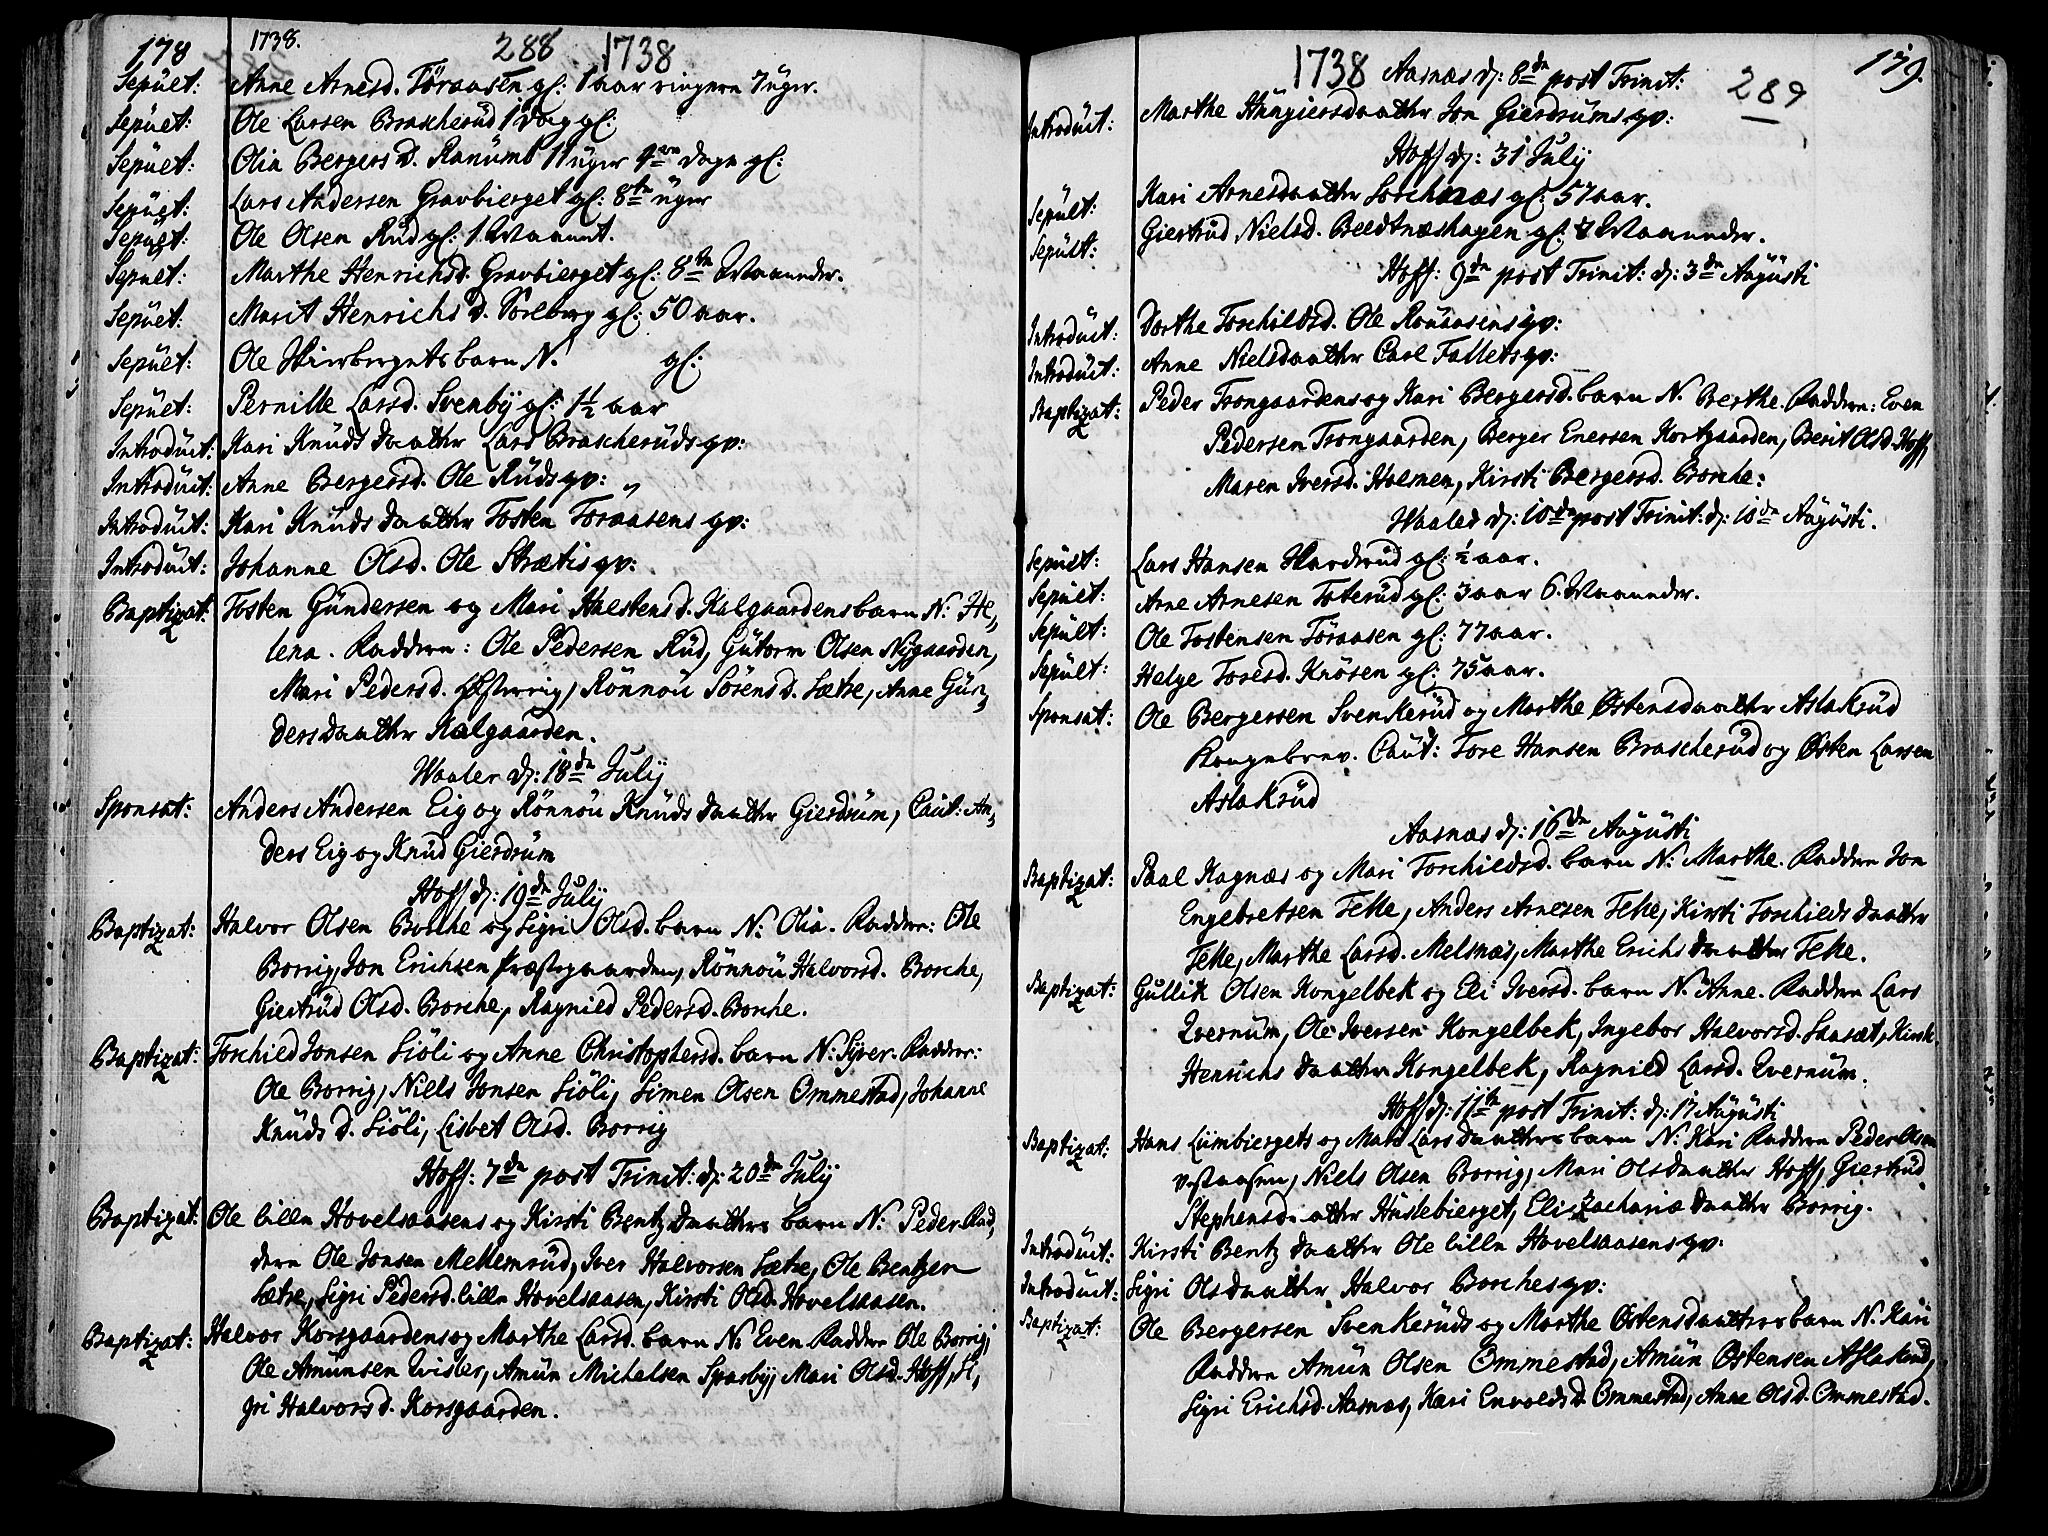 178 1738. 288 1738
Sepuet: Anne Arnesd. Töraasen gl: 1 aar ringere 7 uger.
Sepuet: Ole Larsen Brascherüd 1 Dag gl:
Sepuet: Olia Bergers d. Ranüm 11 uger dage gl:
Sepuet: Lars Andersen Gravbierget gl: 8te üger
Sepuet: Ole Olsen Rüd gl: 1. Maanet.
Sepuet: Marthe Henrichsd. Gravbierget gl: 8te Maaneder.
Sepuet: Marit Henrichs d. Sorberg gl: 50 aar.
Sepuet: Ole barn N. gl:
Sepuet: Pernille Larsd. Svenbÿ gl: 1½ aar
Introduit: Kari Knüds daatter Lars Brascherüds gv:
Introduit: Anne Bergersd. Ole Rüds gv:
Introduit: Kari Knüds daatter Tosten Toraasens gv:
Introduit: Johanne Olsd. Ole Strætis gv:
Baptizat: Tosten Gündersen og Mari Halstens d. Kalgaardens barn N: He,,
lena. Faddere: Ole Pedersen Rüd, Gütorm Olsen Nÿgaarden,
Mari Pedersd. Rönnoü Sörens d. Sætre, Anne Gün,,
ders daatter Kalgaarden.
Waaler d: 18de Julÿ
Sponsat: Anders Andersen Eig og Rönnoü Knüds daatter Gierdrüm, Caut: An,,
ders Eig og Knüd Gierdrüm
Hoff d: 19de Julÿ
Baptizat: Halvor Olsen Borche og Sigri Olsd. barn N: Olia. Faddere: Ole
Borrig, Jon Erichsen Præstegaarden, Rönnoü Halvorsd. Borche,
Giertrüd Olsd. Borche, Ragnild Pedersd. Borche.
Baptizat: Torchild Jonsen Siöli og Anne Christophersd. barn N: Syver. Faddere:
Ole Borrig, Niels Jonsen Siöli, Simen Olsen Ommestad, Johanne
Knüds d. Siöli, Lisbet Olsd. Borrig
Hoff: 7de post Trinit: d: 20de Julÿ
Baptizat: Ole lille Hovelsaasens og Kirsti Bentz daatters barn N: Peder. Fad,,
dere Ole Jonsen Mellemrüd, Iver Halvorsen Sætre, Ole Bentzen
Sætre, Sigri Pedersd. lille Hovelsaasen, Kirsti Olsd. Hovelsaasen.
Baptizat: Halvor Korsgaardens og Marthe Larsd. barn N: Even Faddere Ole Borrig,
Ole Amünsen Amün Michelsen Sparbÿ, Mari Olsd. Hoff, Si,,
gri Halvors d. Korsgaarden.
1738 Aasnæs d: 8de post Trinit: 289 179.
Introduit: Marthe daatter Jon Gierdrüms gv:
Hoff d: 31 Julÿ
Sepult: Kari Arnesdaatter Sorchnæs gl: 57 aar.
Sepült: Giertrüd Nielsd. gl: Maaneder.
Hoff: 9de post Trinit: d: 3de Augüsti
Introduit: Dorthe Torchildsd. Ole gv:
Introduit: Anne Nielsdaatter Carl Fallets gv:
Baptizat: Peder Trongaardens og Kari Bergersd. barn N. Berthe. Faddere: Even
Pedersen Trongaarden, Berger Enersen Kortgaarden, Berit Olsd. Hoff,
Maren Iversd. Holmen, Kirsti Bergersd. Borche:
Waaler d: 10de post Trinit: d: 10de Augüsti.
Sepült: Lars Hansen gl: ½ aar.
Sepult: Arne Arnesen Toterüd gl: 3 aar 6. Maaneder.
Sepült: Ole Tostensen Töraasen gl: 77 aar.
Sepült: Helge Toresd. Knösen gl: 75 aar.
Sponsat: Ole Bergersen Svenkerüd og Marthe Östensdaatter Aslakrüd
Kongebrev. Caut: Tore Hansen Brascherüd og Östen Larsen
Aslakrüd
Aasnæs d: 16de Augüsti
Baptizat: Paal Kagnæs og Mari Torchildsd. barn N: Marthe. Faddere Jon
Engebretsen Felle, Anders Arnesen Felle, Kirsti Torchilds daatter
Felle, Marthe Larsd. Melsnæs, Marthe Erichs daatter Felle.
Baptizat: Güllik Olsen Kongelbek og Eli Iversd. barn N. Anne. Faddere Lars
Evernüm, Ole Iversen Kongelbek, Ingebor Halvorsd. Kirsti
Henrichs daatter Kongelbek, Ragnild Larsd. Evernüm.
Hoff d: 11te post Trinit: d: 17 Augüsti
Baptizat: Hans Lümbiergets og Lars daatters barn N: Kari Faddere Peder Olsen
Niels Olsen Borrig, Mari Olsdaatter Hoff, Giertrüd
Stephensdaatter Hüslebierget, Elie Zachariæ daatter Borrig.
Introduit: Kirsti Bentz daatter Ole lille Hovelsaasens gv:
Introduit: Sigri Olsdaatter Halvor Borches gv:
Baptizat: Ole Bergersen Svenkerüds og Marthe Östensdaatters barn N. Kari
Faddere Amün Olsen Ommestad, Amün Östensen Aslakrud,
Sigri Erichsd. Aasnæs, Kari Envolds d. Ommestad, Anne Olsd. Ommestad.